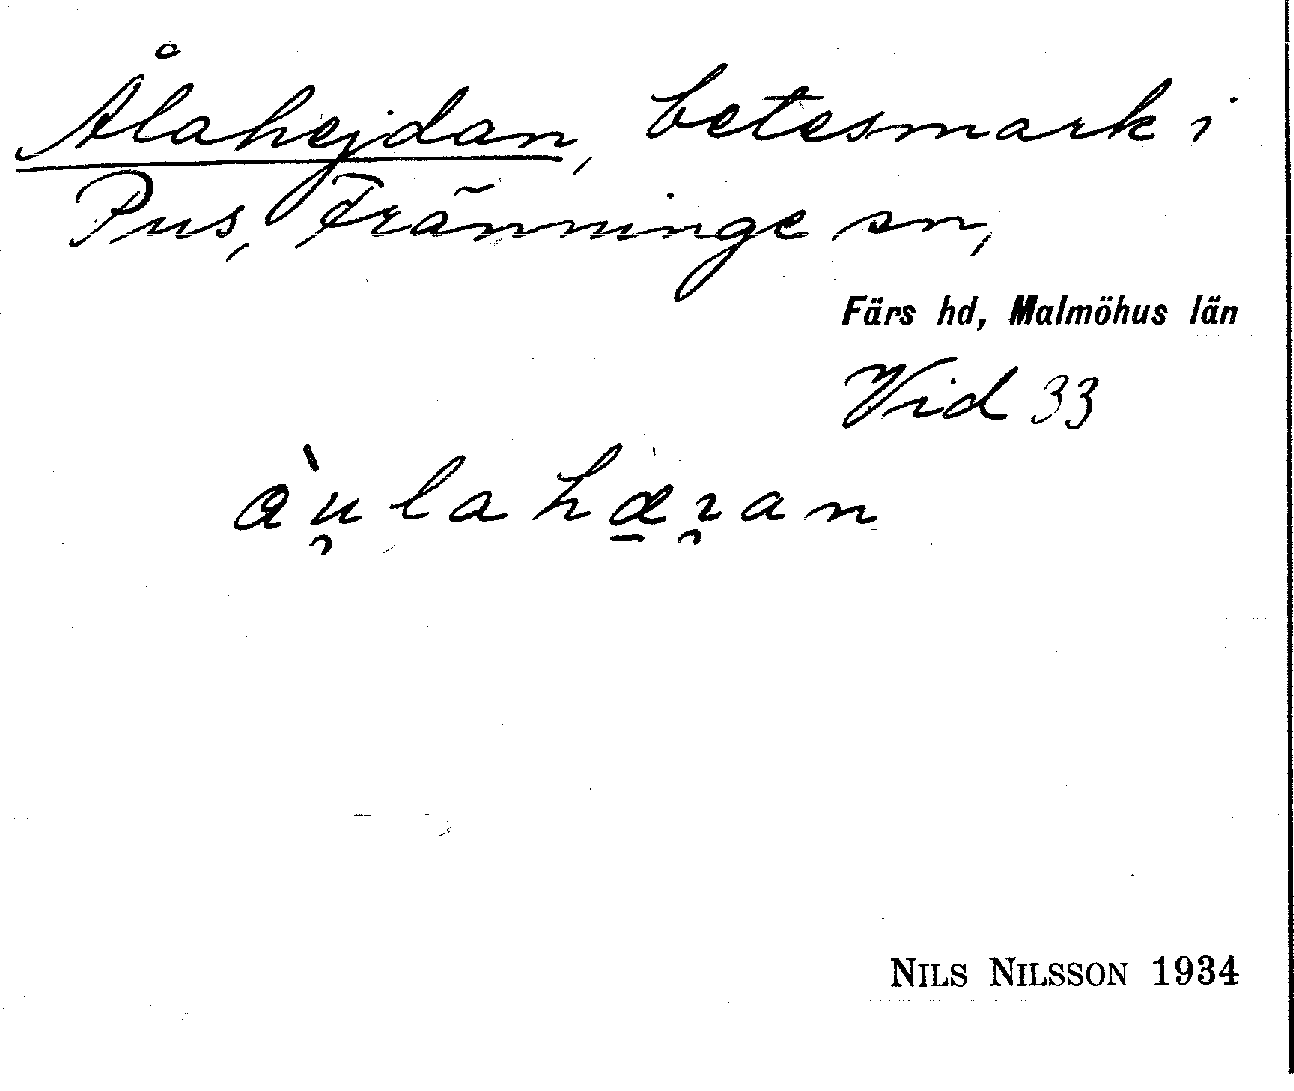 Ålahejdan, betesmark i
Pus, Fränninge sn,
Färs hd, Malmöhus län
Vid 33
àu̯lahæ̱ɿ̯an
NILS NILSSON 1934